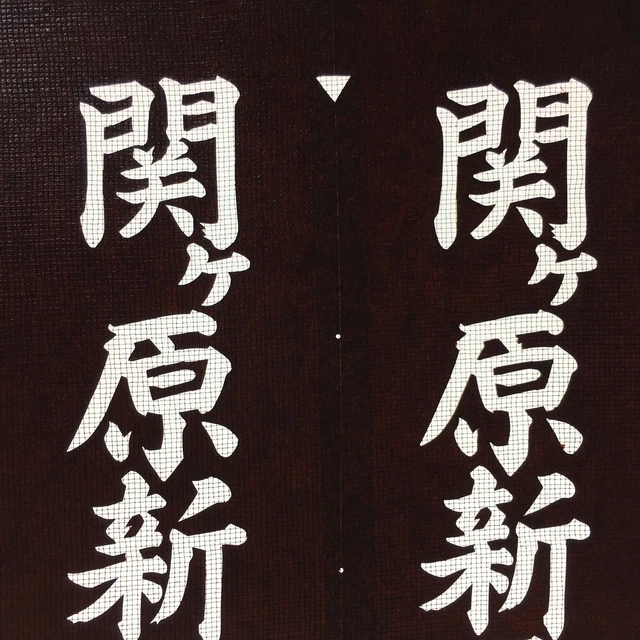 関ヶ原新
関ヶ原新